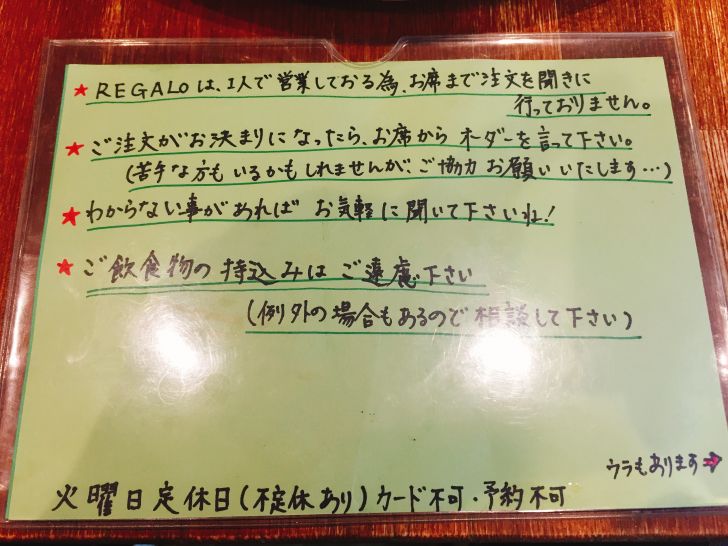 ★ REGALOは、1人で営業しておる為、お席まで注文を聞きに
行っておりません。
★ ご注文がお決まりになったら、お席から オーダーを言って下さい。
(苦手な方も いるかもしれませんが、ご協力 お願いいたします…)
★ わからない事があれば お気軽に聞いて下さいね!
★ ご飲食物の 持込みは ご遠慮下さい
(例外の場合もあるので相談して下さい)
ウラもあります→
火曜日定休日(不定休あり)カード不可・予約不可